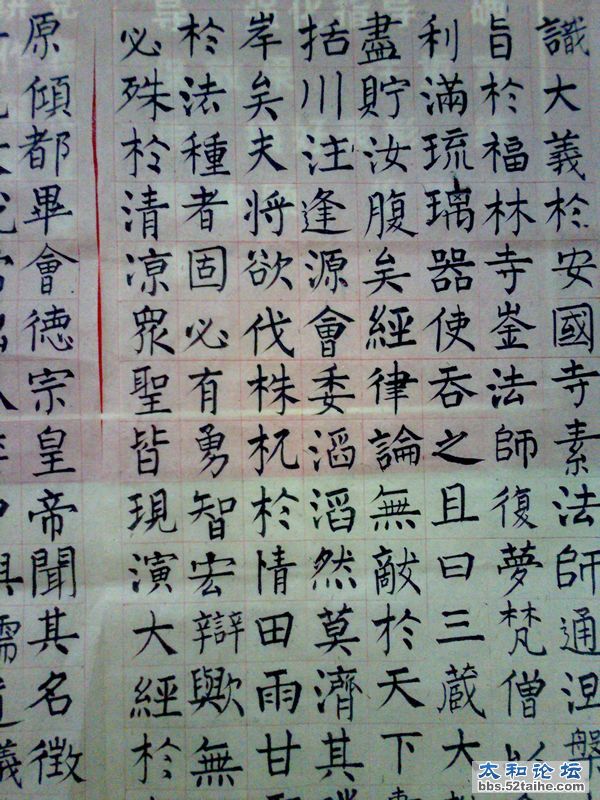 識大義於安國寺素法師通涅槃
旨於福林寺崟法師復夢梵僧以
利滿琉璃器使吞之且曰三藏大
盡貯汝腹矣經律論無敵於天下
括川注逢源會委滔滔然莫濟其
岸矣夫將欲伐株杌於情田雨甘
於法種者固必有勇智宏辯歟無
必殊於清凉衆聖皆現演大經於
原傾都畢會德宗皇帝聞其名徵
太和论坛
bbs.52taihe.com